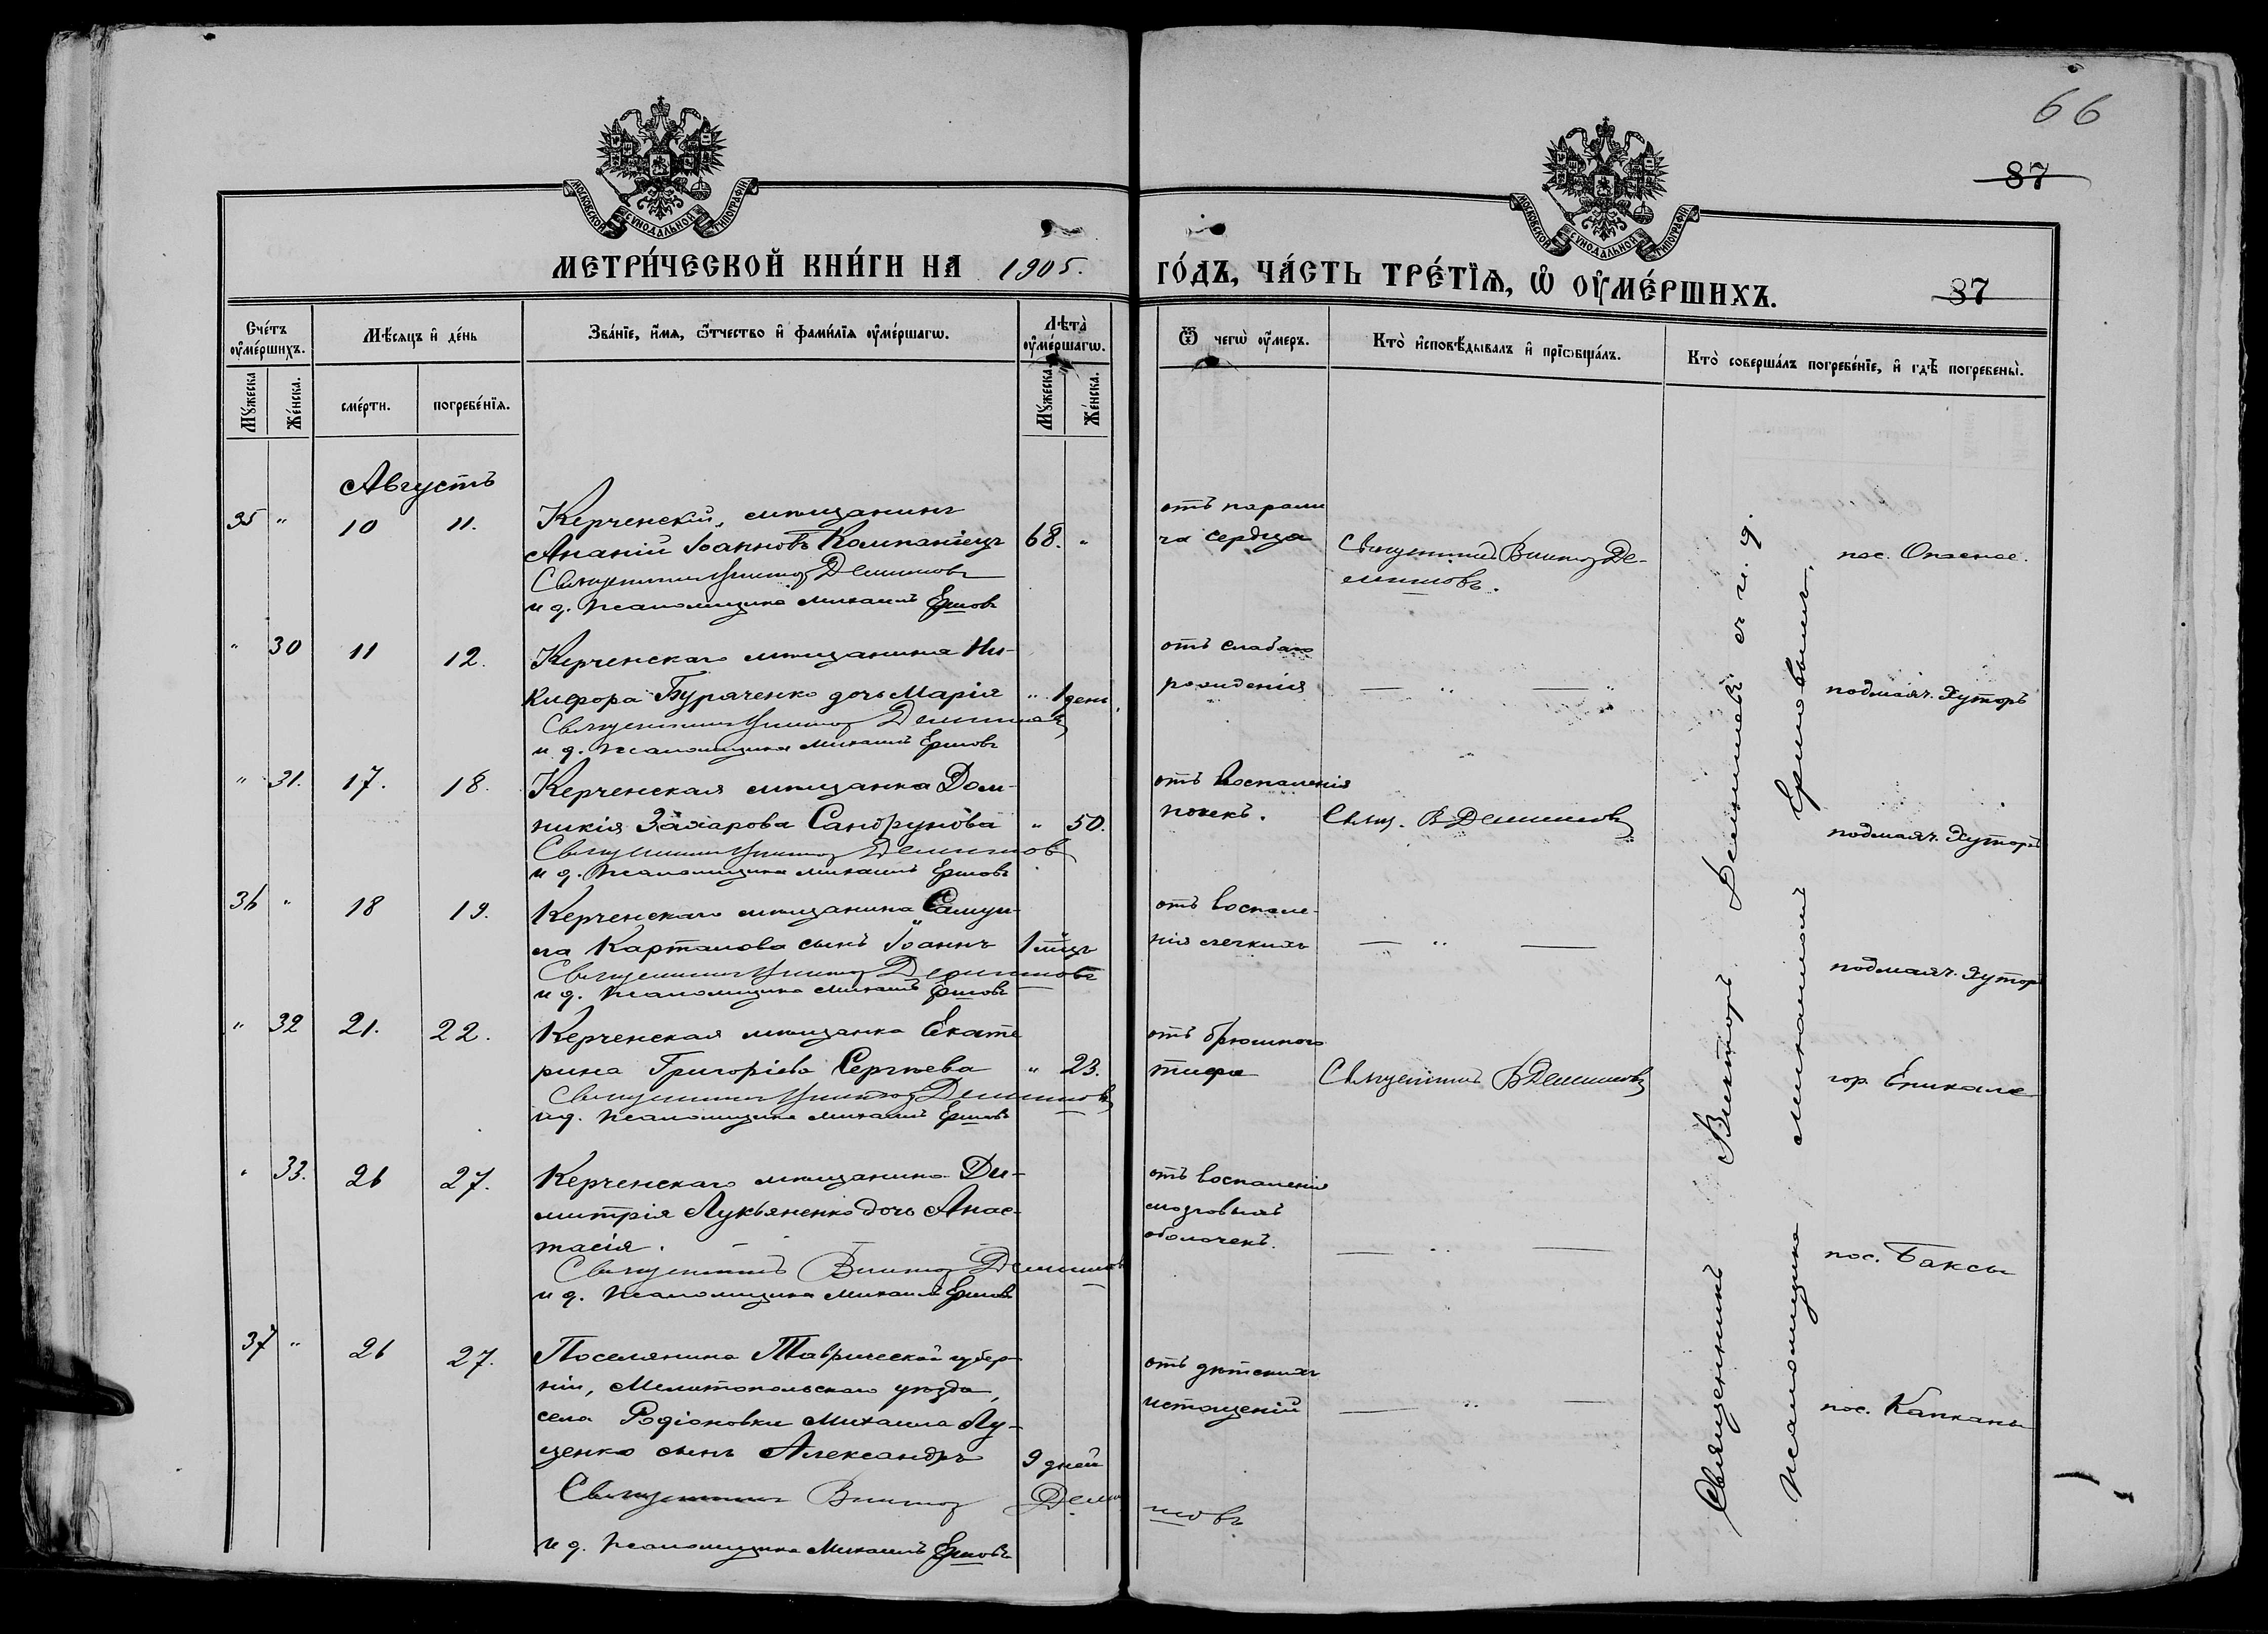 66
87
МОСКОВСКОЙ СѴНОДАЛЬНОЙ ТИПОГРАФІИ
МОСКОВСКОЙ СѴНОДАЛЬНОЙ ТИПОГРАФІИ
МЕТРИ́ЧЕСКОЙ КНИ́ГИ НА 1905. ГО́ДЪ, ЧА́СТЬ ТРЕ́ТЇѦ, Ѡ҆ ОУ҆МЕ́РШИХЪ.
87
Сче́тъ оу҆ме́ршихъ.
Мѣ́сѧцъ и҆ де́нь
Зва́нїе, и҆́мѧ, ѻ҆́тчество и҆ фами́лїѧ оу҆ме́ршагѡ.
Лѣ́та оу҆ме́ршагѡ.
Ѿ чегѡ̀ оу҆́меръ.
Кто̀ и҆сповѣ́дывалъ и҆ прїѡбща́лъ.
Кто̀ соверша́лъ погребе́нїе, и҆ гдѣ̀ погребены̀.
Мꙋ́жеска
Же́нска.
сме́рти.
погребе́нїѧ.
Мꙋ́жеска
Же́нска.
Августъ
35 " 10 11. Керченскій мѣщанинъ
Ананій Іоанновъ Компаніецъ 68. "
Священникъ Викторъ Демишовъ
и д. псаломщика Михаилъ Ершовъ
отъ парали
ча сердца
Священникъ Викторъ Де-
мишовъ.
пос. Опасное.
" 30 11 12. Керченскаго мѣщанина Ни-
кифора Буряченко дочь Марія " 1 день
Священникъ Викторъ Демишовъ
и д. псаломщика Михаилъ Ершовъ
отъ слабаго
рожденія
— " — "
подмаяч. Хуторъ
" 31. 17. 18. Керченская мѣщанка Дом-
никія Захарова Сандрунова " 50.
Священникъ Викторъ Демишовъ
и д. псаломщика Михаилъ Ершовъ
отъ воспаленія
почекъ.
Свящ. В Демишовъ
подмаяч. Хуторъ
36 " 18 19. Керченскаго мѣщанина Самуи-
ла Карталова сынъ Іоаннъ 1 мѣц
Священникъ Викторъ Демишовъ
и д. псаломщика Михаилъ Ершовъ
отъ воспале-
нія легкихъ
— " —
подмаяч. Хутор
" 32 21. 22. Керченская мѣщанка Екате
рина Григоріева Сергѣева " 23.
Священникъ Викторъ Демишовъ
и д. псаломщика Михаилъ Ершовъ
отъ брюшного
тифа
Священникъ В Демишовъ
гор. Еникале
" 33. 26 27. Керченскаго мѣщанина Ди-
митрія Лукьяненко дочь Анас-
тасія.
Священникъ Викторъ Демишовъ
и д. псаломщика Михаилъ Ершовъ
отъ воспаленія
мозговыхъ
оболочекъ.
— " —
пос. Баксы
37 " 26 27. Поселянина Таврической губер-
ніи, Мелитопольскаго уѣзда,
села Родіоновки Михаила Лу-
ценко сынъ Александръ 9 дней
Священникъ Викторъ Деми
шовъ.
и д. псаломщика Михаилъ Ершовъ
отъ дѣтскихъ
истощеній
— " —
пос. Капканы
Священникъ Викторъ Демишовъ съ и. д.
псаломщика Михаиломъ Ершовымъ.